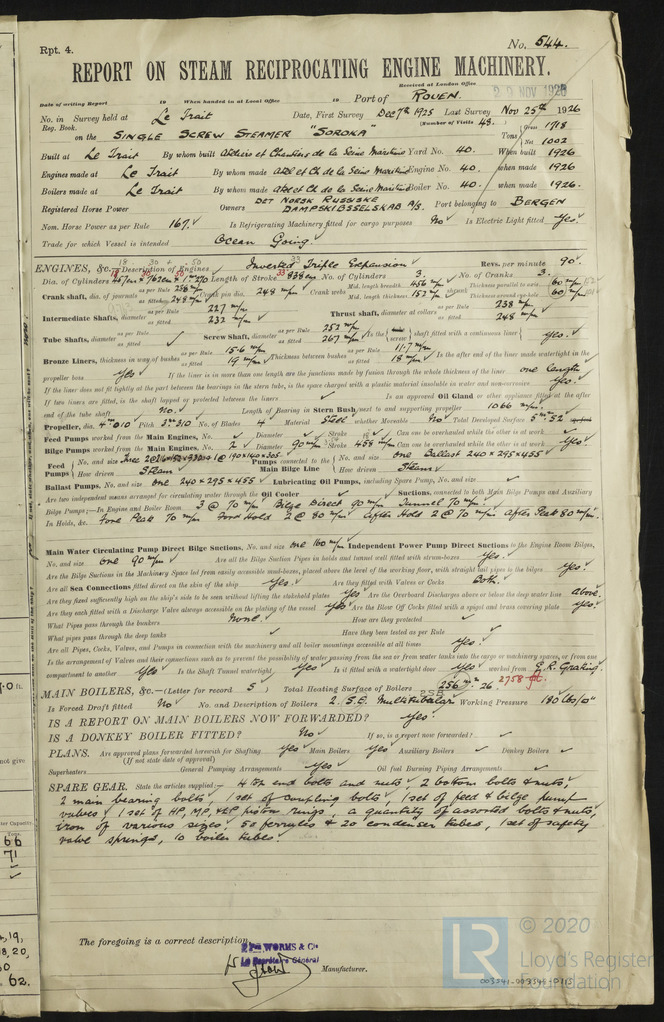 Rpt. 4.
No. 544.
REPORT ON STEAM RECIPROCATING ENGINE MACHINERY.
Received at London Office 22 NOV 1926
Date of writing Report 19 When handed in at Local Office 19 Port of ROUEN.
No. in Survey held at Le Trait Date, First Survey Dec 7th 1925 Last Survey Nov 25th 1926
Reg. Book. (Number of Visits 48.)
on the SINGLE SCREW STEAMER "SOROKA" Tons Gross 1718 Net 1002
Built at Le Trait By whom built Ateliers et Chantiers de la Seine Maritime Yard No. 40. When built 1926
Engines made at Le Trait By whom made Atel et Ch de la Seine Maritime Engine No. 40. when made 1926
Boilers made at Le Trait By whom made Atel et Ch de la Seine Maritime Boiler No. 40. when made 1926.
Registered Horse Power Owners DET NORSK RUSSISKE DAMPSKIBSSELSKAB A/S. Port belonging to BERGEN
Nom. Horse Power as per Rule 167. Is Refrigerating Machinery fitted for cargo purposes No Is Electric Light fitted Yes.
Trade for which Vessel is intended Ocean Going.
ENGINES, &c. Description of Engines Inverted Triple Expansion Revs. per minute 90
Dia. of Cylinders Length of Stroke 838 No. of Cylinders 3. No. of Cranks 3.
Crank shaft, dia. of journals as per Rule as fitted 248 m/m Crank pin dia. 248 m/m Crank webs Mid. length breadth 456 m/m Mid. length thickness 152 m/m Thickness parallel to axis 60 m/m Thickness around eye-hole 60 m/m
Intermediate Shafts, diameter as per Rule 227 m/m as fitted 232 m/m Thrust shaft, diameter at collars as per Rule 238 m/m as fitted 248 m/m
Tube Shafts, diameter as per Rule as fitted Screw Shaft, diameter as per Rule 252 m/m as fitted 267 m/m Is the screw shaft fitted with a continuous liner Yes.
Bronze Liners, thickness in way of bushes as per Rule 15.6 m/m as fitted 19 m/m Thickness between bushes as per Rule 11.7 m/m as fitted 18 m/m Is the after end of the liner made watertight in the
propeller boss Yes If the liner is in more than one length are the junctions made by fusion through the whole thickness of the liner one length
If the liner does not fit tightly at the part between the bearings in the stern tube, is the space charged with a plastic material insoluble in water and non-corrosive Yes.
If two liners are fitted, is the shaft lapped or protected between the liners Is an approved Oil Gland or other appliance fitted at the after
end of the tube shaft No. Length of Bearing in Stern Bush next to and supporting propeller 1066 m/m.
Propeller, dia. 4m 010 Pitch 3m 310 No. of Blades 4 Material Steel whether Moveable No Total Developed Surface 5m² 52
Feed Pumps worked from the Main Engines, No. Diameter Stroke Can one be overhauled while the other is at work
Bilge Pumps worked from the Main Engines, No. 2 Diameter 90 m/m Stroke 458 m/m Can one be overhauled while the other is at work Yes
Feed Pumps No. and size Pumps connected to the Main Bilge Line No. and size one Ballast 240 x 295 x 455
How driven Steam How driven Steam
Ballast Pumps, No. and size one 240 x 295 x 455 Lubricating Oil Pumps, including Spare Pump, No. and size
Are two independent means arranged for circulating water through the Oil Cooler Suctions, connected to both Main Bilge Pumps and Auxiliary
Bilge Pumps:—In Engine and Boiler Room 3 @ 70 m/m Bilge Direct 90 m/m Tunnel 70 m/m.
In Holds, &c. Fore Peak 70 m/m Ford Hold 2 @ 80 m/m After Hold 2 @ 70 m/m After Peak 80 m/m.
Main Water Circulating Pump Direct Bilge Suctions, No. and size one 160 m/m Independent Power Pump Direct Suctions to the Engine Room Bilges,
No. and size one 90 m/m Are all the Bilge Suction Pipes in holds and tunnel well fitted with strum-boxes Yes.
Are the Bilge Suctions in the Machinery Space led from easily accessible mud-boxes, placed above the level of the working floor, with straight tail pipes to the bilges Yes.
Are all Sea Connections fitted direct on the skin of the ship Yes. Are they fitted with Valves or Cocks Both.
Are they fixed sufficiently high on the ship's side to be seen without lifting the stokehold plates Yes Are the Overboard Discharges above or below the deep water line above.
Are they each fitted with a Discharge Valve always accessible on the plating of the vessel Yes Are the Blow Off Cocks fitted with a spigot and brass covering plate Yes.
What Pipes pass through the bunkers None. How are they protected
What pipes pass through the deep tanks Have they been tested as per Rule
Are all Pipes, Cocks, Valves, and Pumps in connection with the machinery and all boiler mountings accessible at all times Yes.
Is the arrangement of Valves and their connections such as to prevent the possibility of water passing from the sea or from water tanks into the cargo or machinery spaces, or from one
compartment to another Yes Is the Shaft Tunnel watertight Yes Is it fitted with a watertight door Yes worked from E.R. Grating.
MAIN BOILERS, &c.—(Letter for record S) Total Heating Surface of Boilers 256 m² 26. 2758 ft.
Is Forced Draft fitted No No. and Description of Boilers 2. S.E. Multitubular Working Pressure 180 lbs/□"
IS A REPORT ON MAIN BOILERS NOW FORWARDED? Yes.
IS A DONKEY BOILER FITTED? No If so, is a report now forwarded?
PLANS. Are approved plans forwarded herewith for Shafting Yes Main Boilers Yes Auxiliary Boilers Donkey Boilers
(If not state date of approval)
Superheaters General Pumping Arrangements Yes Oil fuel Burning Piping Arrangements
SPARE GEAR. State the articles supplied:— 4 top end bolts and nuts, 2 bottom bolts & nuts,
2 main bearing bolts, 1 set of coupling bolts, 1 set of feed & bilge pump
valves, 1 set of HP, MP, & LP piston rings, a quantity of assorted bolts & nuts,
iron of various sizes, 50 ferrules & 20 condenser tubes, 1 set of safety
valve springs, 10 boiler tubes.
The foregoing is a correct description,
WORMS & Cie
Le Secrétaire Général
Manufacturer.
© 2020
LR Lloyd's Register
Foundation
003341-003349-0113
ft.
not give
ter Capacity.
Tons.
66
71
19,
18, 20,
62.